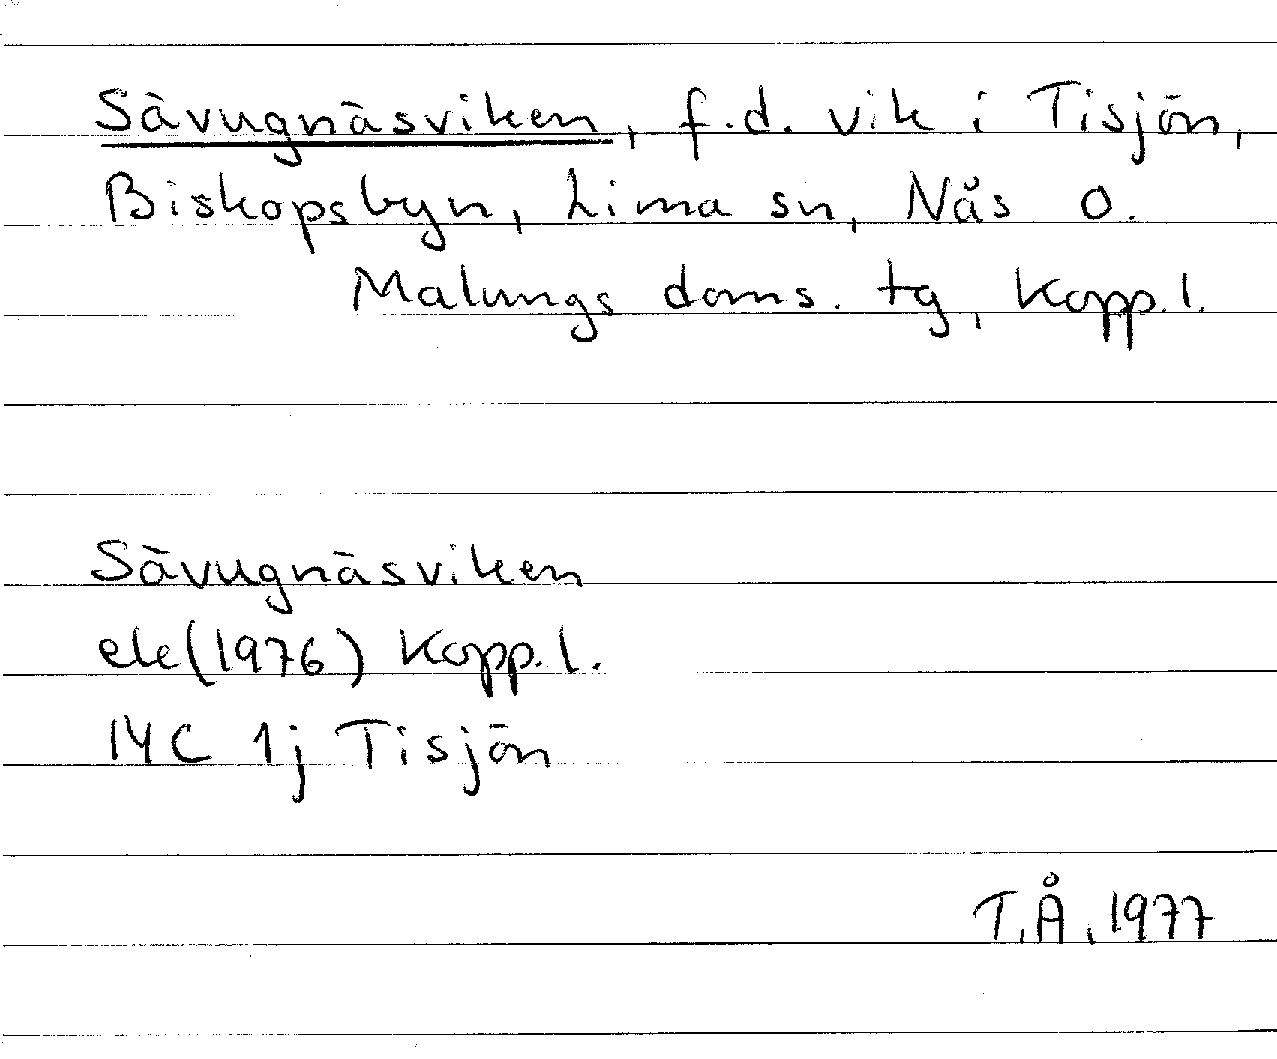 Sävugnäsviken, f.d. vik i Tisjön,
Biskopsbyn, Lima sn, Nås o.
Malungs doms. tg, Kopp.l.
Sävugnäsviken
ek(1976) Kopp.l.
14C 1j Tisjön
T.Å. 1977